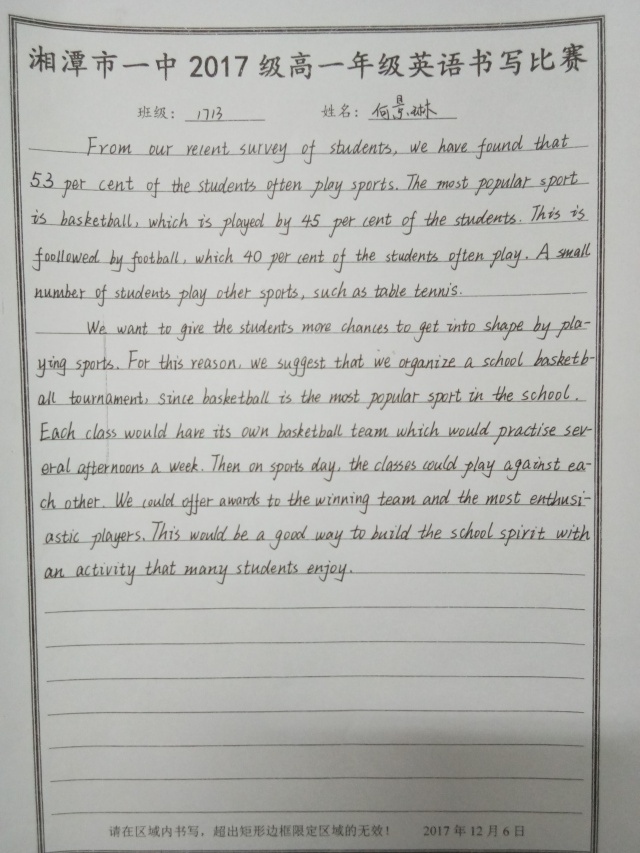 湘潭市一中 2017 级高一年级英语书写比赛
班级: 1713 姓名: 何景琳
From our recent survey of students, we have found that
53 per cent of the students often play sports. The most popular sport
is basketball, which is played by 45 per cent of the students. This is
foollowed by football, which 40 per cent of the students often play. A small
number of students play other sports, such as table tennis.
We want to give the students more chances to get into shape by pla-
ying sports. For this reason, we suggest that we organize a school basketb-
all tournament, since basketball is the most popular sport in the school.
Each class would have its own basketball team which would practise sev-
eral afternoons a week. Then on sports day, the classes could play against ea-
ch other. We could offer awards to the winning team and the most enthusi-
astic players. This would be a good way to build the school spirit with
an activity that many students enjoy.
请在区域内书写，超出矩形边框限定区域的无效！ 2017 年 12 月 6 日